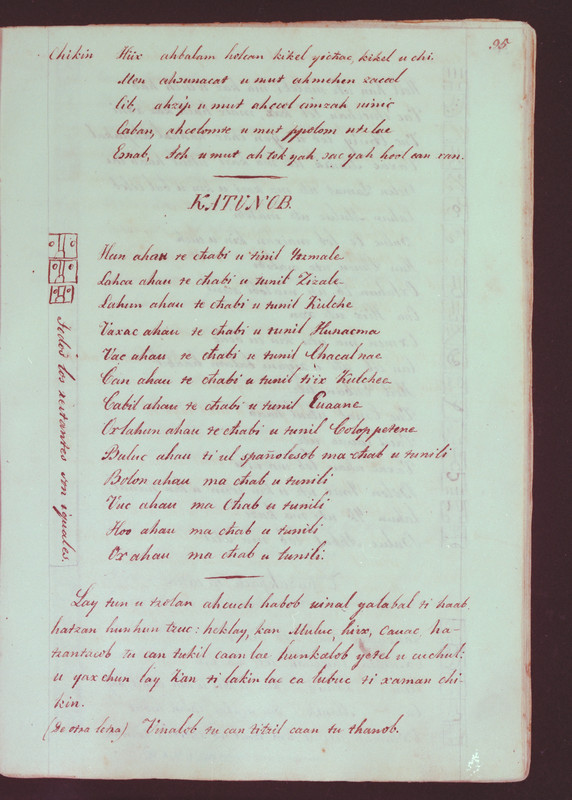 95
Chikin Hiix ahbalam holcan kikel yichac, kikel u chi.
Men ahɔunacat u mut ahmehen zacal
Cib, ahzip u mut ahcool cimzah uinic
Caban, ahcolomte u mut ppolom utulae
Esnab, Ich u mut ah tok yah zac yah hool can ran.
KATUNOB.
Hun ahau te chabi u tunil Itzmale
Lahca ahau te chabi u tunil Zizale
Lahun ahau te chabi u tunil Kulche
Vaxac ahau te chabi u tunil Hunacma
Vac ahau te chabi u tunil Chacalnae
Can ahau te chabi u tunil tiix Kulchee
Cabil ahau te chabi u tunil Euaane
Oxlahun ahau te chabi u tunil Coloppetene
Buluc ahau ti ul españolesob ma chab u tunili
Bolon ahau ma chab u tunili
Vuc ahau ma chab u tunili
Hoo ahau ma chab u tunili
Ox ahau ma chab u tunili.
Todos los restantes son iguales.
Lay tun u tzolan ahcuch habob uinal yalabal ti haab
hatzan hunhun tzuc: heklay, kan Muluc, hiix, Cauac, ha-
tzantacob tu can tukil caan lae hunkalob yetel u cuchul:
u yax chun lay Kan ti lakin lae ca lubuc ti xaman chi-
kin.
(De otra letra) Vinalob tu can titzil caan tu thanob.